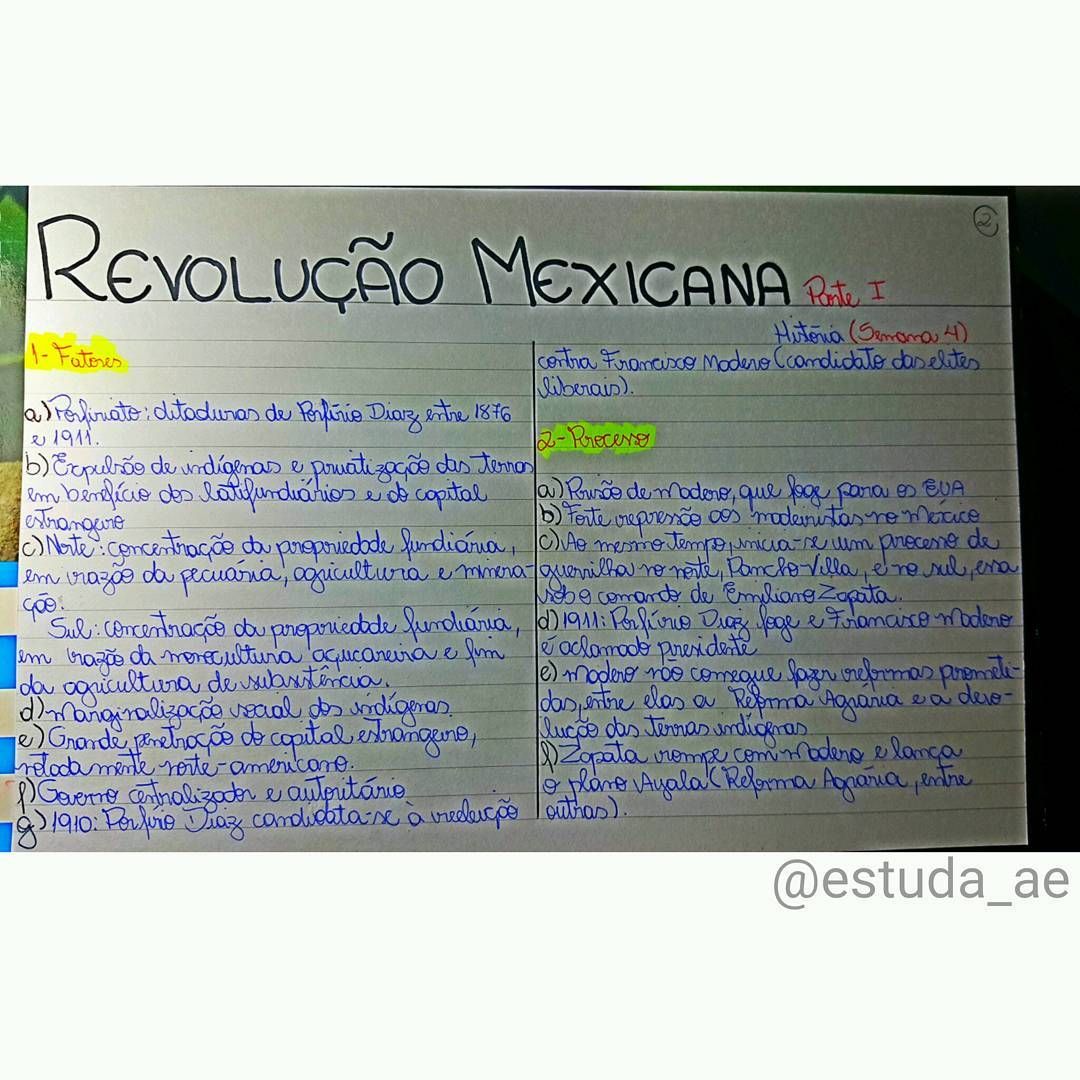 2
REVOLUÇÃO MEXICANA Parte I
História (Semana 4)
1- Fatores
a) Porfiriato: ditaduras de Porfírio Diaz entre 1876
e 1911.
b) Expulsão de indígenas e privatização das terras
em benefício dos latifundiários e do capital
estrangeiro
c) Norte: concentração da propriedade fundiária,
em razão da pecuária, agricultura e minera-
ção.
Sul: concentração da propriedade fundiária,
em razão da monocultura açucareira e fim
da agricultura de subsistência.
d) Marginalização social dos indígenas.
e) Grande penetração do capital estrangeiro,
notadamente norte-americano.
f) Governo centralizador e autoritário
g) 1910: Porfirio Diaz candidata-se à reeleição
contra Francisco Madero (candidato das elites
liberais).
2- Processo
a) Prisão de Madero, que foge para os EUA
b) Forte repressão aos madeiristas no México
c) Ao mesmo tempo, inicia-se um processo de
guerrilha no norte, Pancho Villa, e no sul, essa
sob o comando de Emiliano Zapata.
d) 1911: Porfírio Diaz foge e Francisco Madero
é aclamado presidente
e) Madero não consegue fazer reformas prometi-
das, entre elas a Reforma Agrária e a devo-
lução das terras indígenas.
f) Zapata rompe com Madero e lança
o plano Ayala (Reforma Agrária, entre
outras).
@estuda_ae